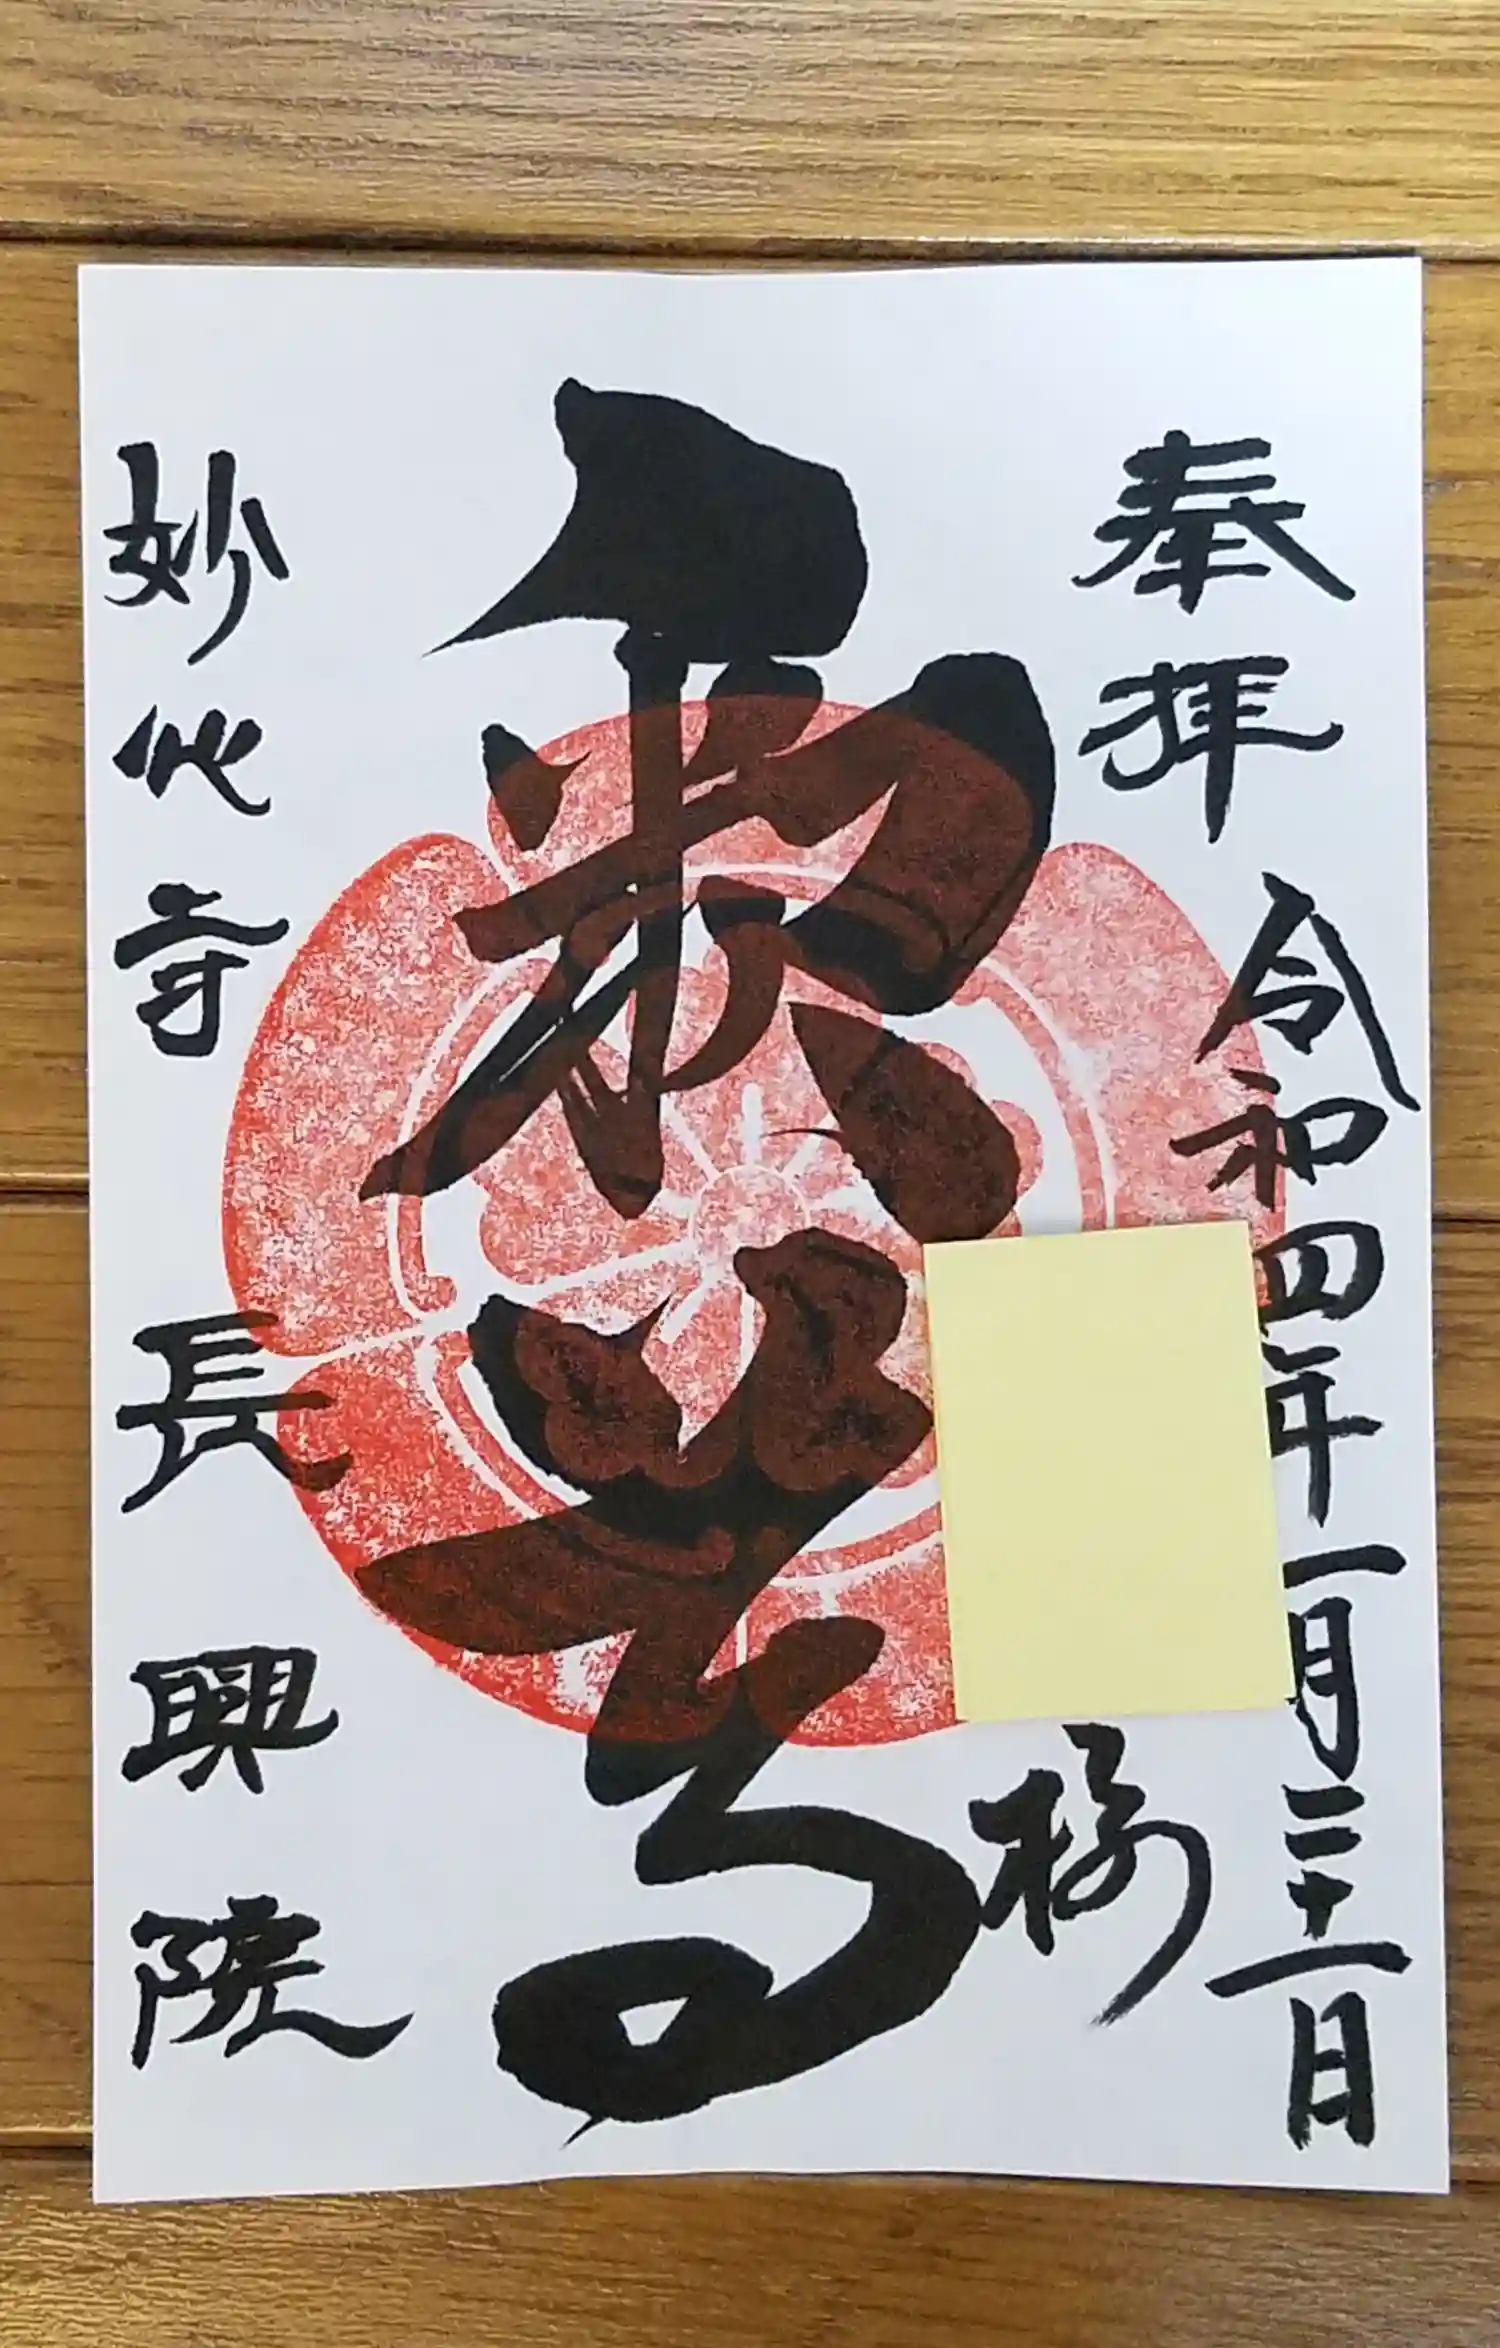 奉拝 令和四年一月二十一日
様
妙心寺 長興院